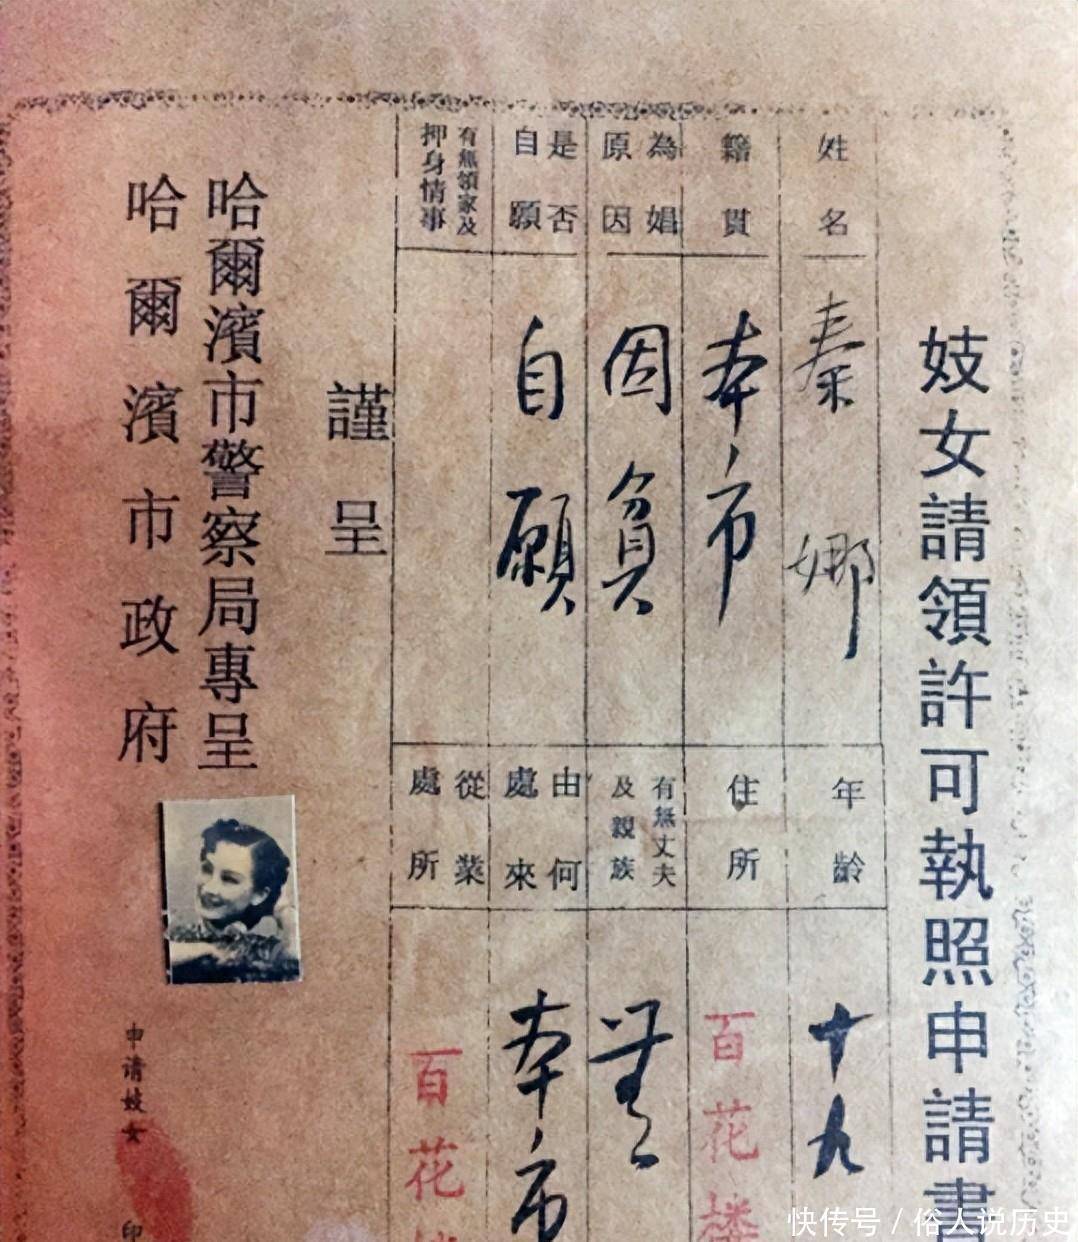 妓女請領許可執照申請書
姓名
秦娜
年齡
十九
籍貫
本市
住所
百花楼
為娼原因
因貧
有無丈夫及親族
無
是否自願
自願
由何處來
本市
有無領家及押身情事
從業處所
百花
謹呈
哈爾濱市警察局專呈
哈爾濱市政府
申请妓女
印
快传号/俗人说历史